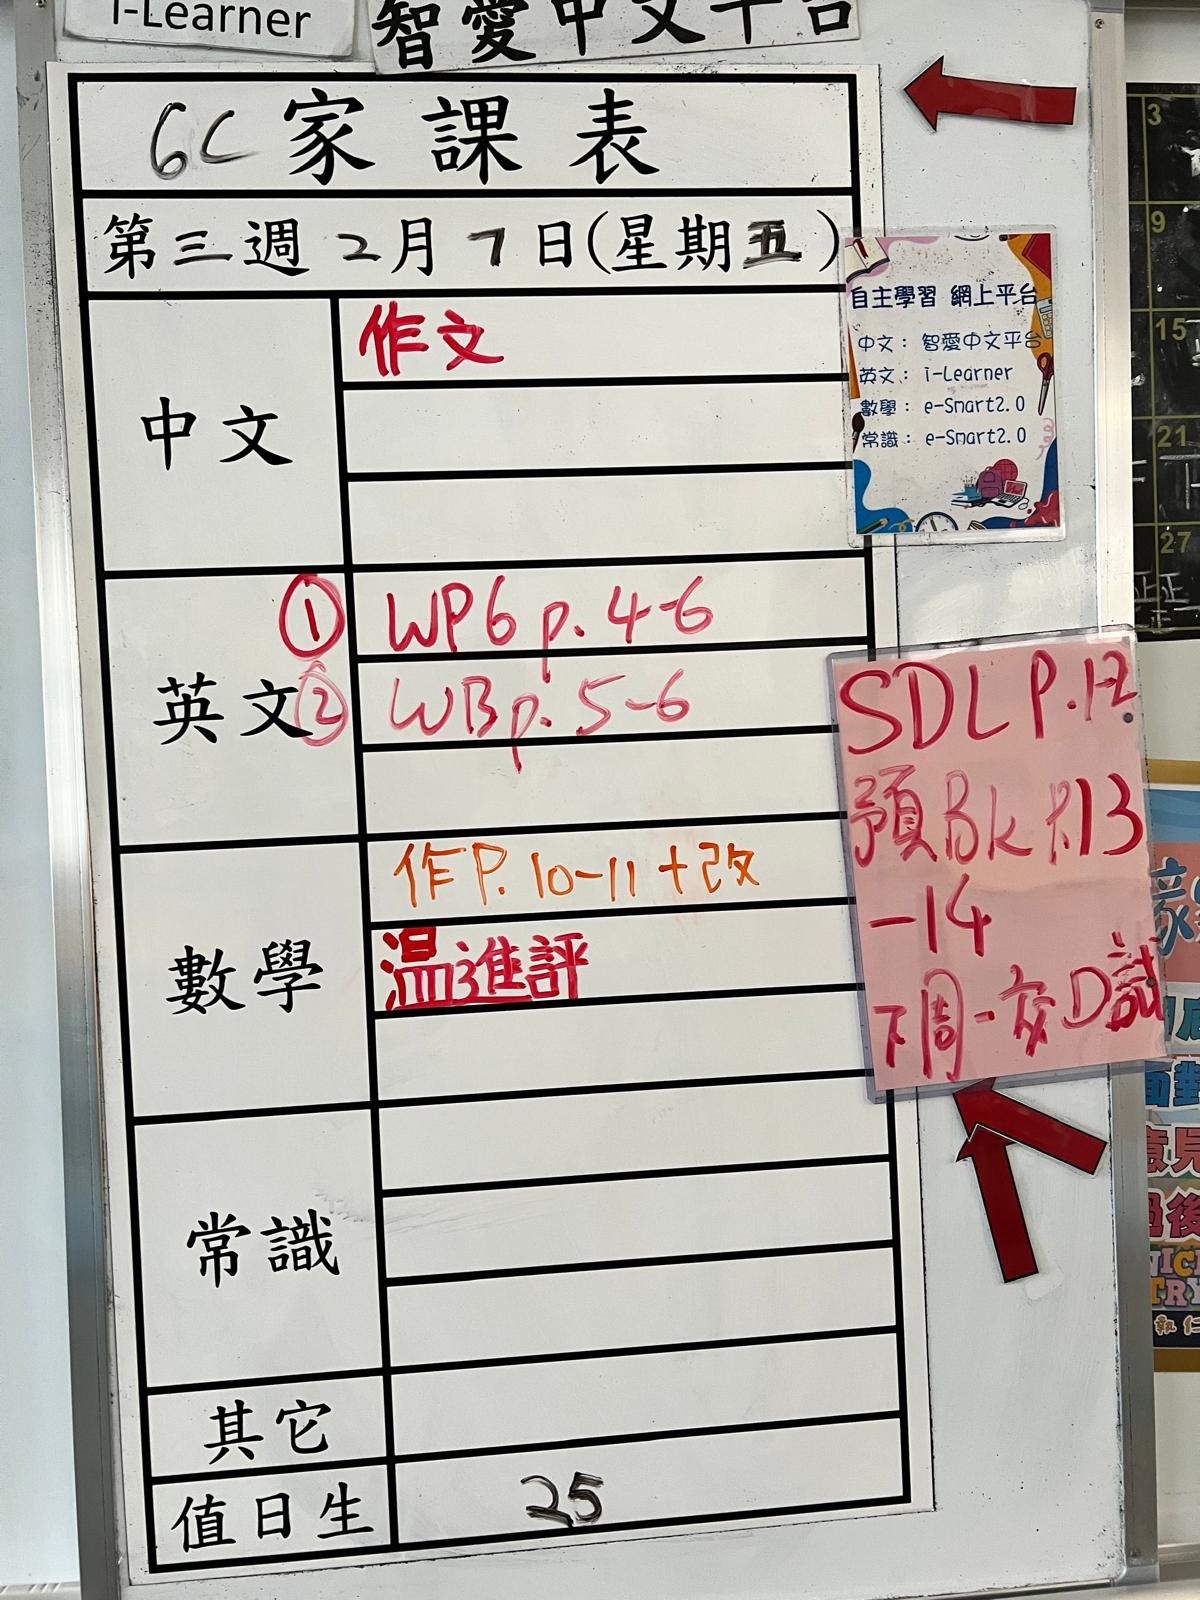 i-Learner
智愛中文平台
6C 家課表
第三週 2月7日(星期五)
中文
作文
英文
① WP6 p. 4-6
② WB p. 5-6
數學
作 P. 10-11 + 改
温進評
常識
其它
值日生
25
自主學習 網上平台
中文： 智愛中文平台
英文： i-Learner
數學： e-Smart2.0
常識： e-Smart2.0
SDL P.12
預Bk P.13
-14
下周一交D試
3
9
15
21
27